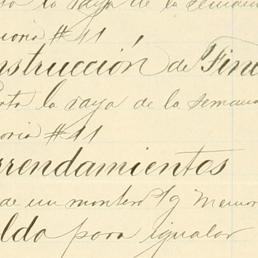 la raya de la semana
#11
nstrucción de Fin
la raya de la semana
oria #11
rrendamientos
de un montero Memor
ldo para igualar